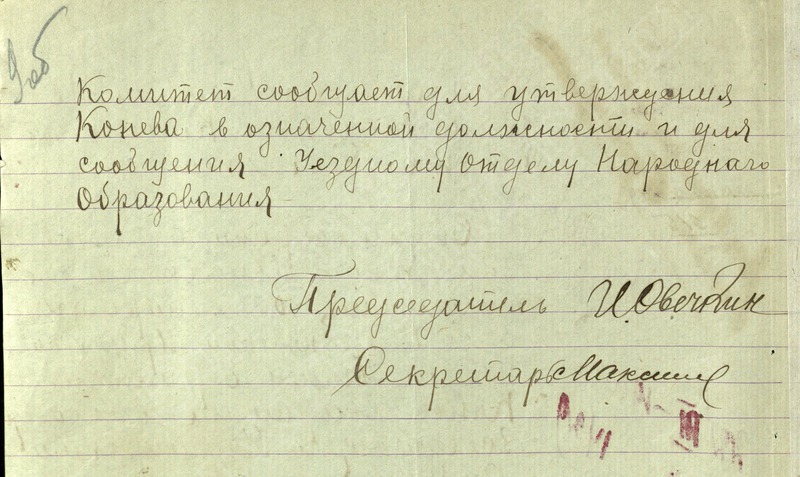 Комитет сообщает для утверждения
Конева в означенной должности и для
сообщения Уездному Отделу Народнаго
Образования
Председатель И Овечкин
Секретарь